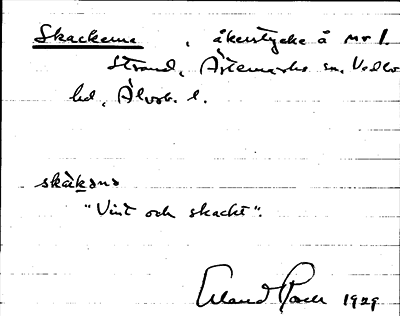 Skackerna, åkerstycke å nr 1.
Strand, Ärtemarks sn, Vedbo
hd, Älvsb. l.
skàkənɒ
"Vint och skackt".
Erland Rosell 1929